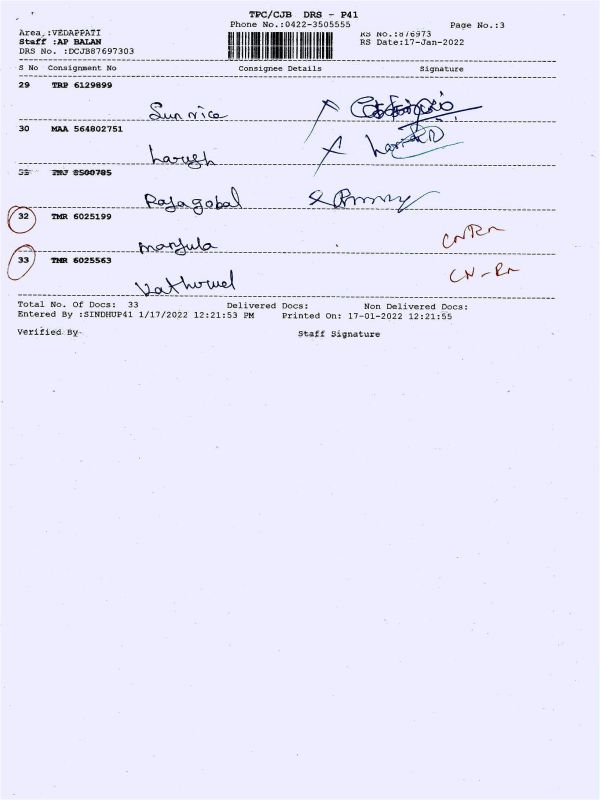 TPC/CJB DRS - P41
Phone No.:0422-3505555
Page No.:3
Area,:VEDAPPATI
Staff :AP BALAN
RS Date:17-Jan-2022
DRS No. :DCJB87697303
S No Consignment No Consignee Details Signature
29 TRP 6129899
Sunrice
30 MAA 564802751
harish
8500785
Rajagobal
32 TMR 6025199
manjula
33 TMR 6025563
Total No. Of Docs: 33 Delivered Docs: Non Delivered Docs:
Entered By :SINDHUP41 1/17/2022 12:21:53 PM Printed On: 17-01-2022 12:21:55
Verified By Staff Signature